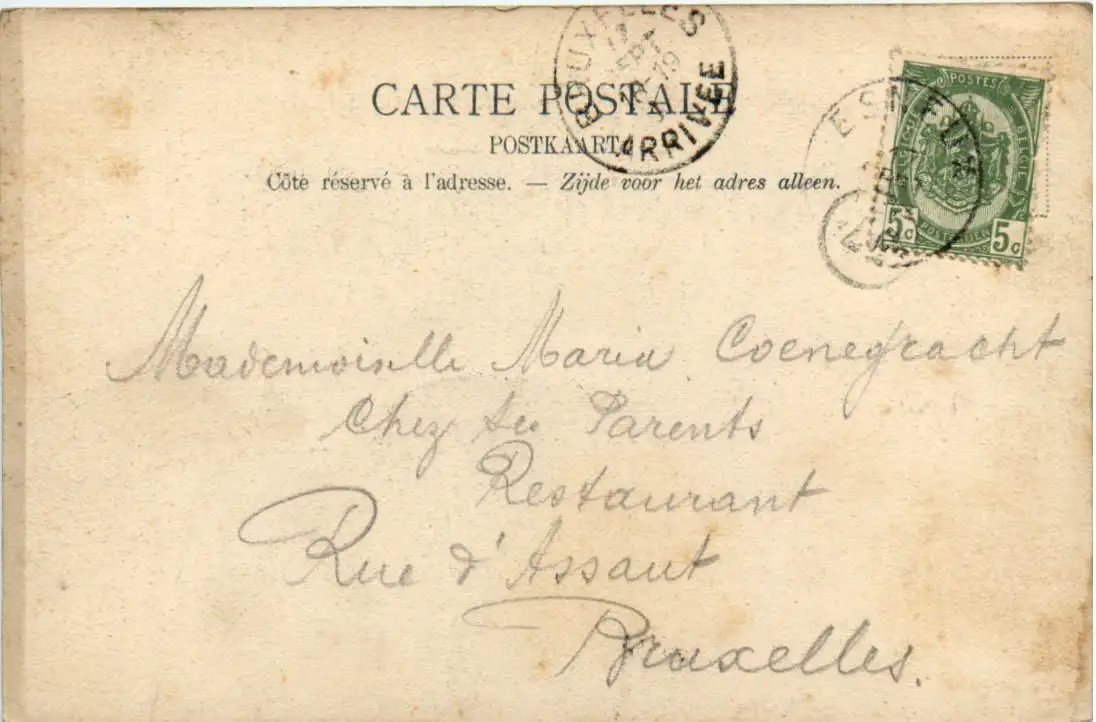 BRUXELLES
ARRIVEE
CARTE POSTALE
POSTKAART
Côté réservé à l'adresse. — Zijde voor het adres alleen.
ESNEUX
POSTES
BELGIQUE
BELGIE
5c 5c
POSTERIJEN
Mademoiselle Maria Coenegracht
Chez Ses Parents
Restaurant
Rue d'Assaut
Bruxelles.